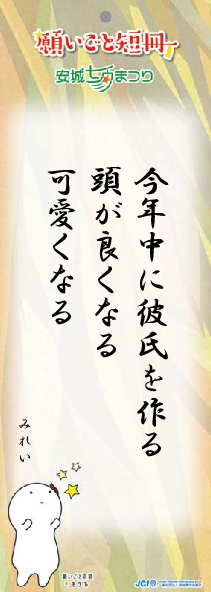 願いごと短冊
安城七夕まつり
今年中に彼氏を作る
頭が良くなる
可愛くなる
みれい
願いごと短冊
JCI